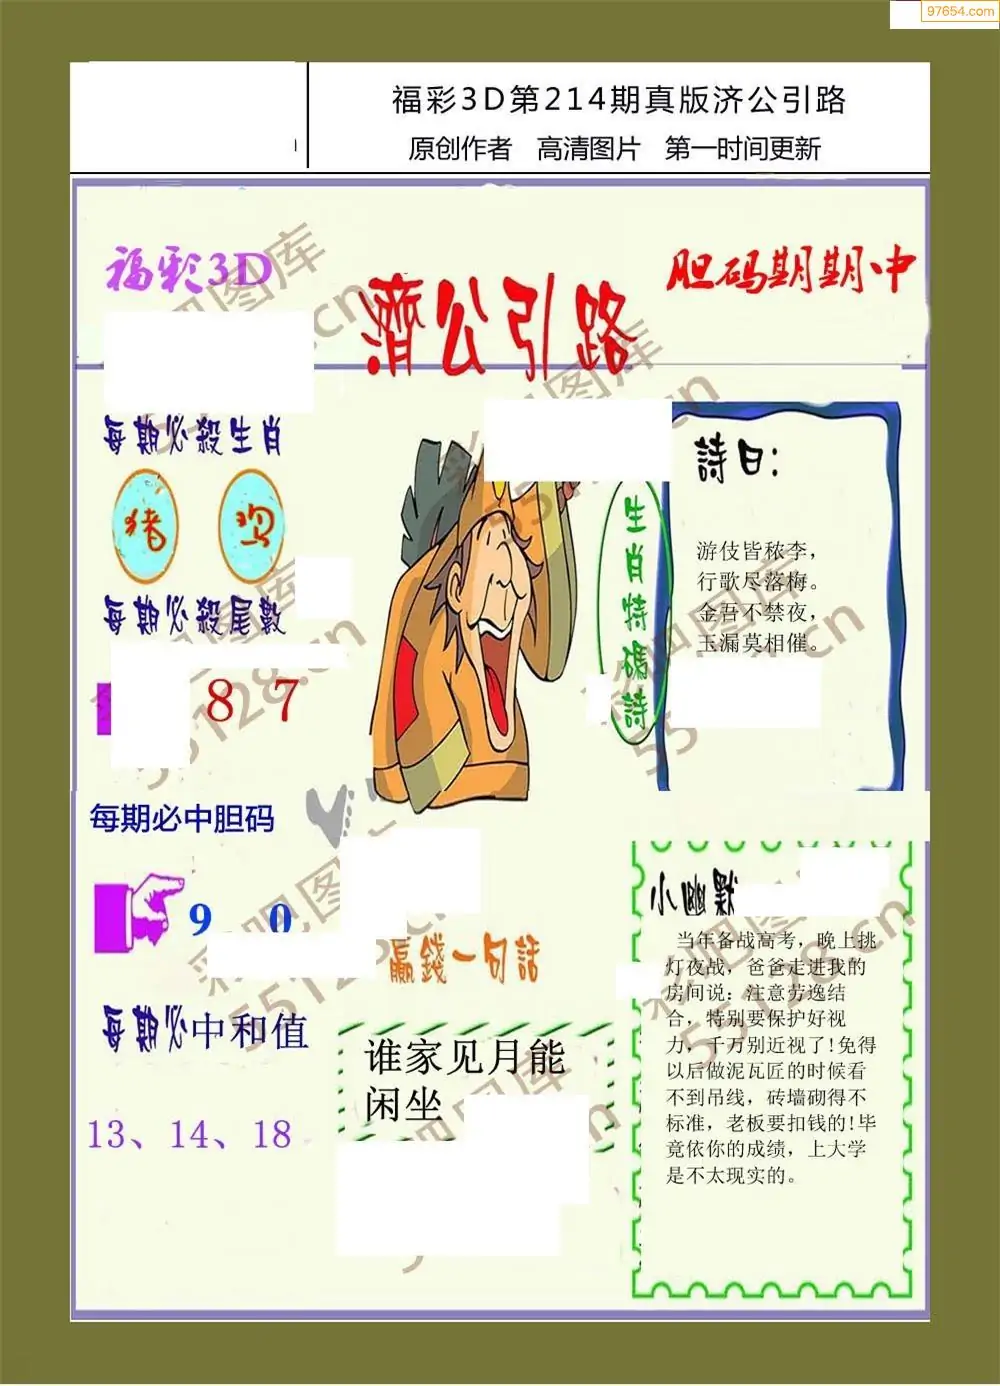 97654.com
福彩3D第214期真版济公引路
原创作者 高清图片 第一时间更新
福彩3D
濟公引路
胆码期期中
每期必殺生肖
猪 鸡
每期必殺尾數
8 7
每期必中胆码
9 0
每期必中和值
13、14、18
生肖特碼詩
詩曰:
游伎皆秾李,
行歌尽落梅。
金吾不禁夜,
玉漏莫相催。
贏錢一句話
谁家见月能
闲坐
小幽默
当年备战高考，晚上挑
灯夜战，爸爸走进我的
房间说：注意劳逸结
合，特别要保护好视
力，千万别近视了!免得
以后做泥瓦匠的时候看
不到吊线，砖墙砌得不
标准，老板要扣钱的!毕
竟依你的成绩，上大学
是不太现实的。
彩吧图库
55128.cn